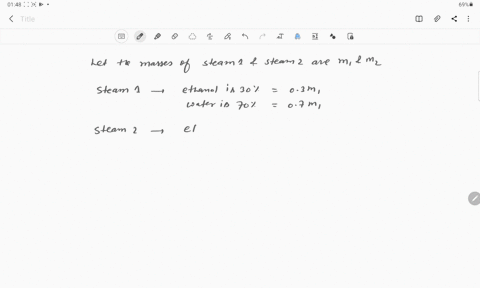 01:48
69%
Title
Let the masses of steam 1 & steam 2 are m₁ & m₂
Steam 1 → ethanol is 30% = 0.3m₁
water is 70% = 0.7m₁
Steam 2 → et